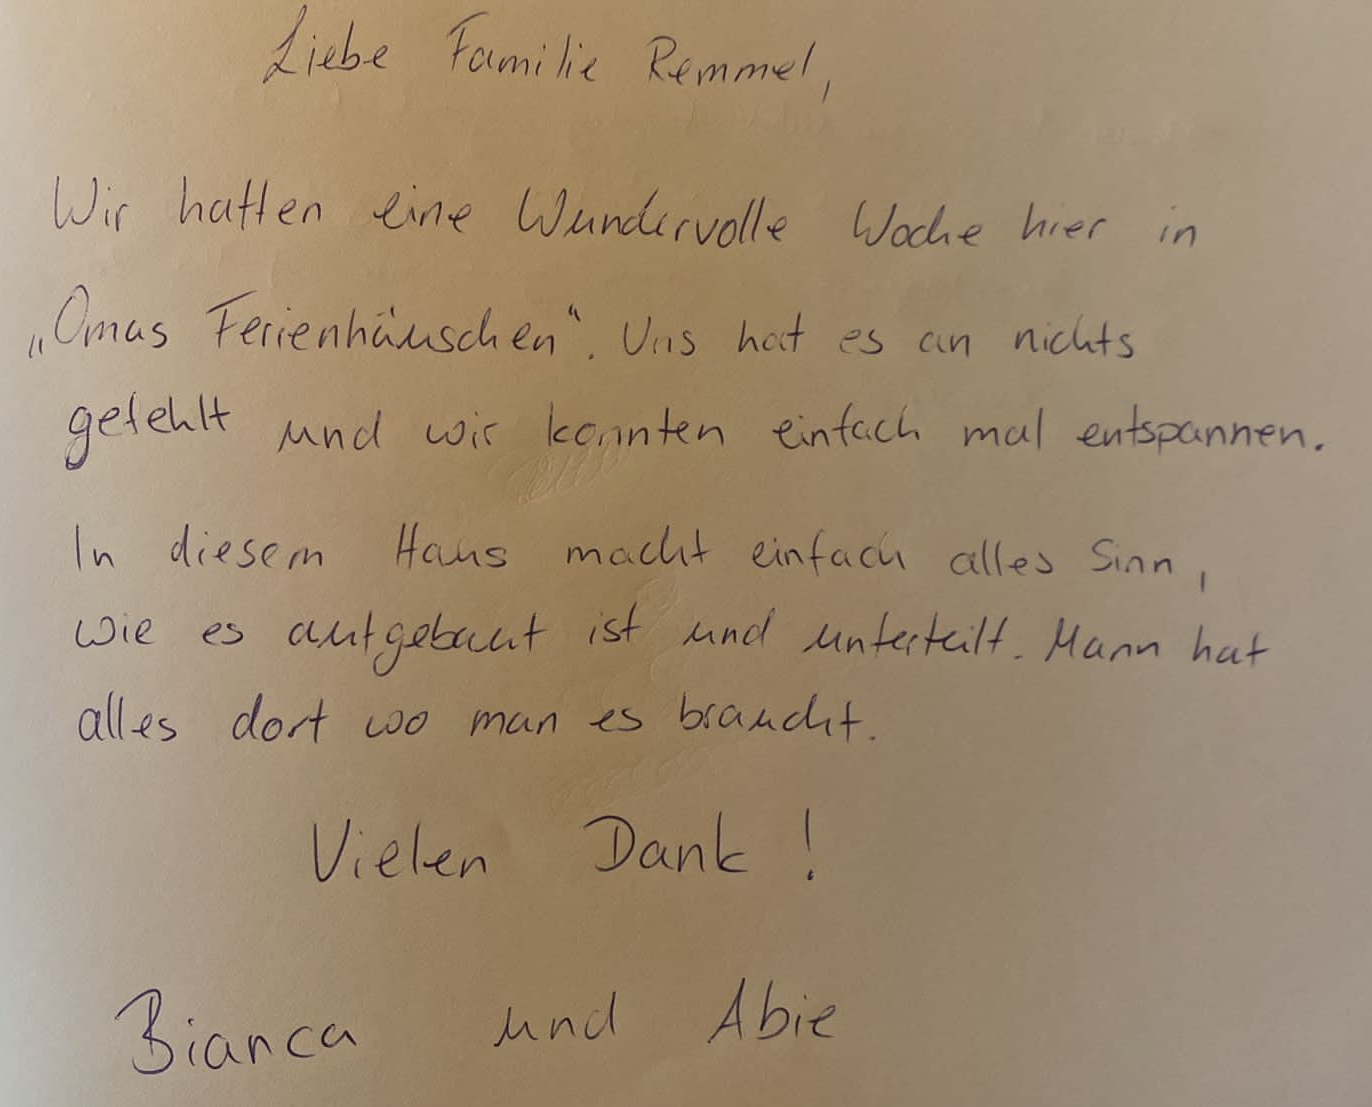 Liebe Familie Remmel,
Wir hatten eine Wundervolle Woche hier in
„Omas Ferienhäuschen“. Uns hat es an nichts
gefehlt und wir konnten einfach mal entspannen.
In diesem Haus macht einfach alles Sinn,
wie es aufgebaut ist und unterteilt. Mann hat
alles dort wo man es braucht.
Vielen Dank !
Bianca und Abie